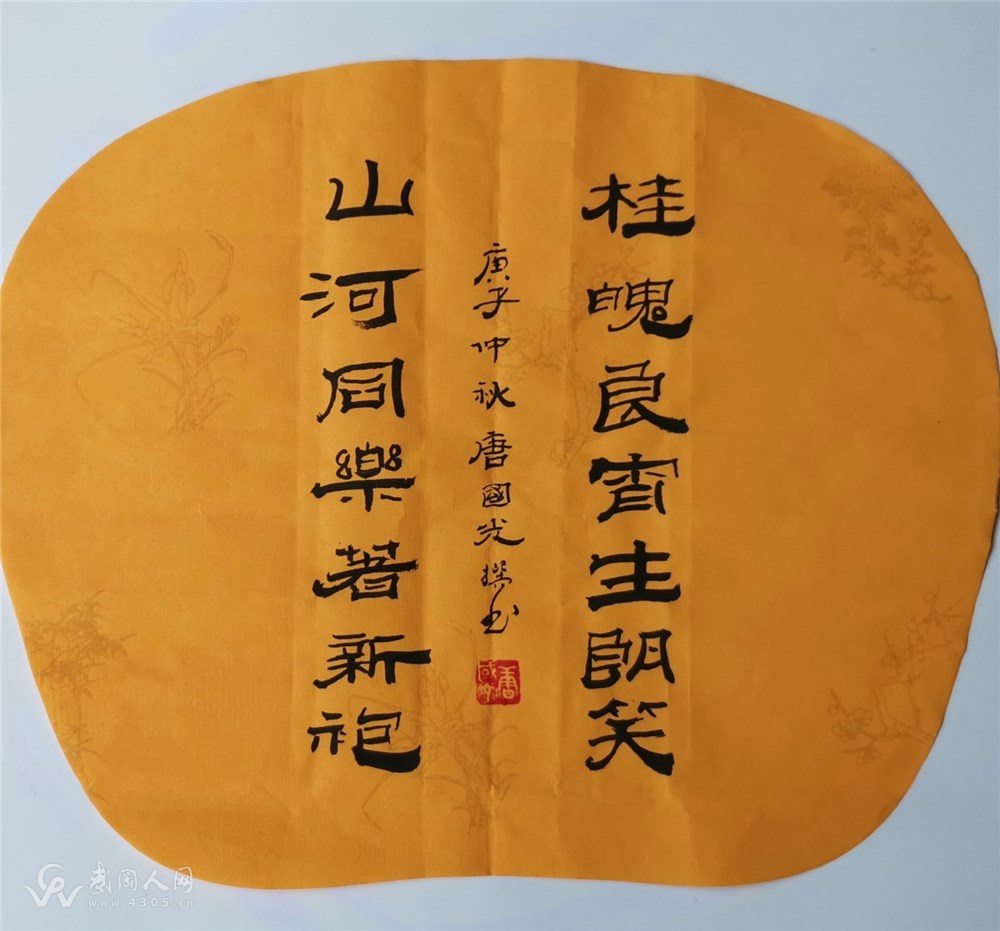 桂魄良宵生朗笑
庚子仲秋唐國光撰书
山河同樂著新袍
武冈人网
www.4305.cn